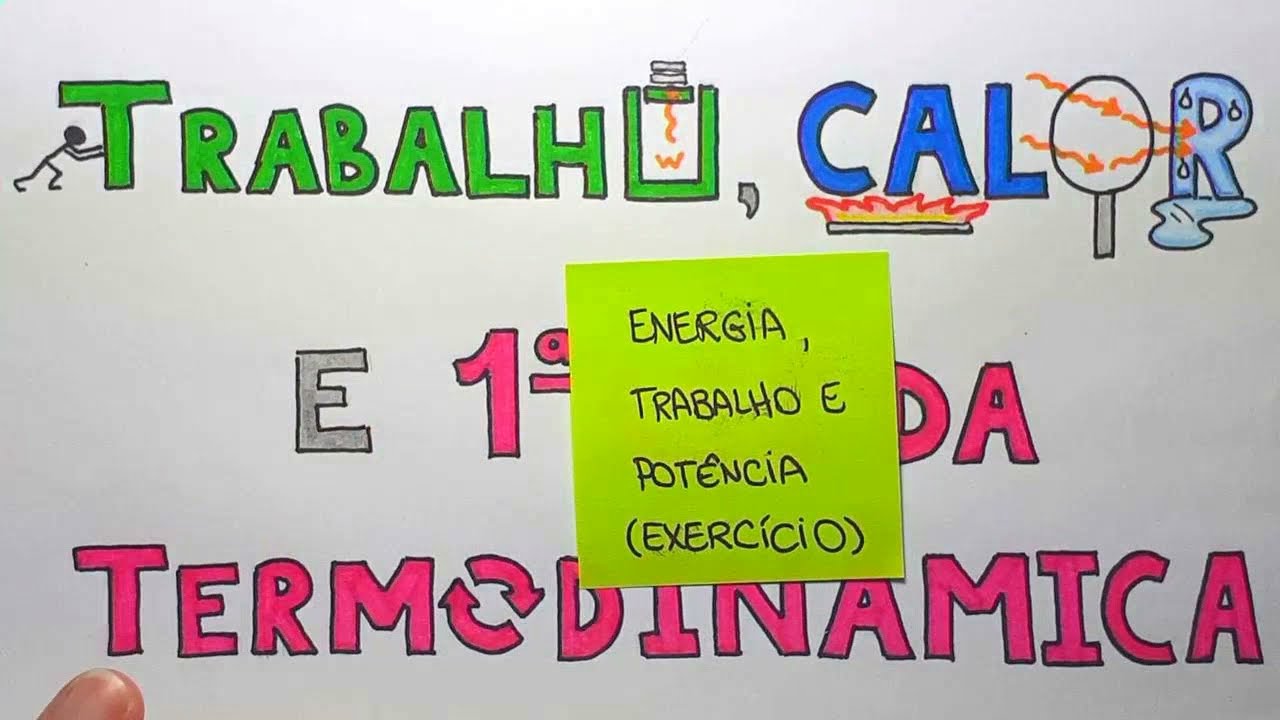 TRABALHO, CALOR
E 1ª DA
TERMODINAMICA
ENERGIA,
TRABALHO E
POTÊNCIA
(EXERCÍCIO)
W